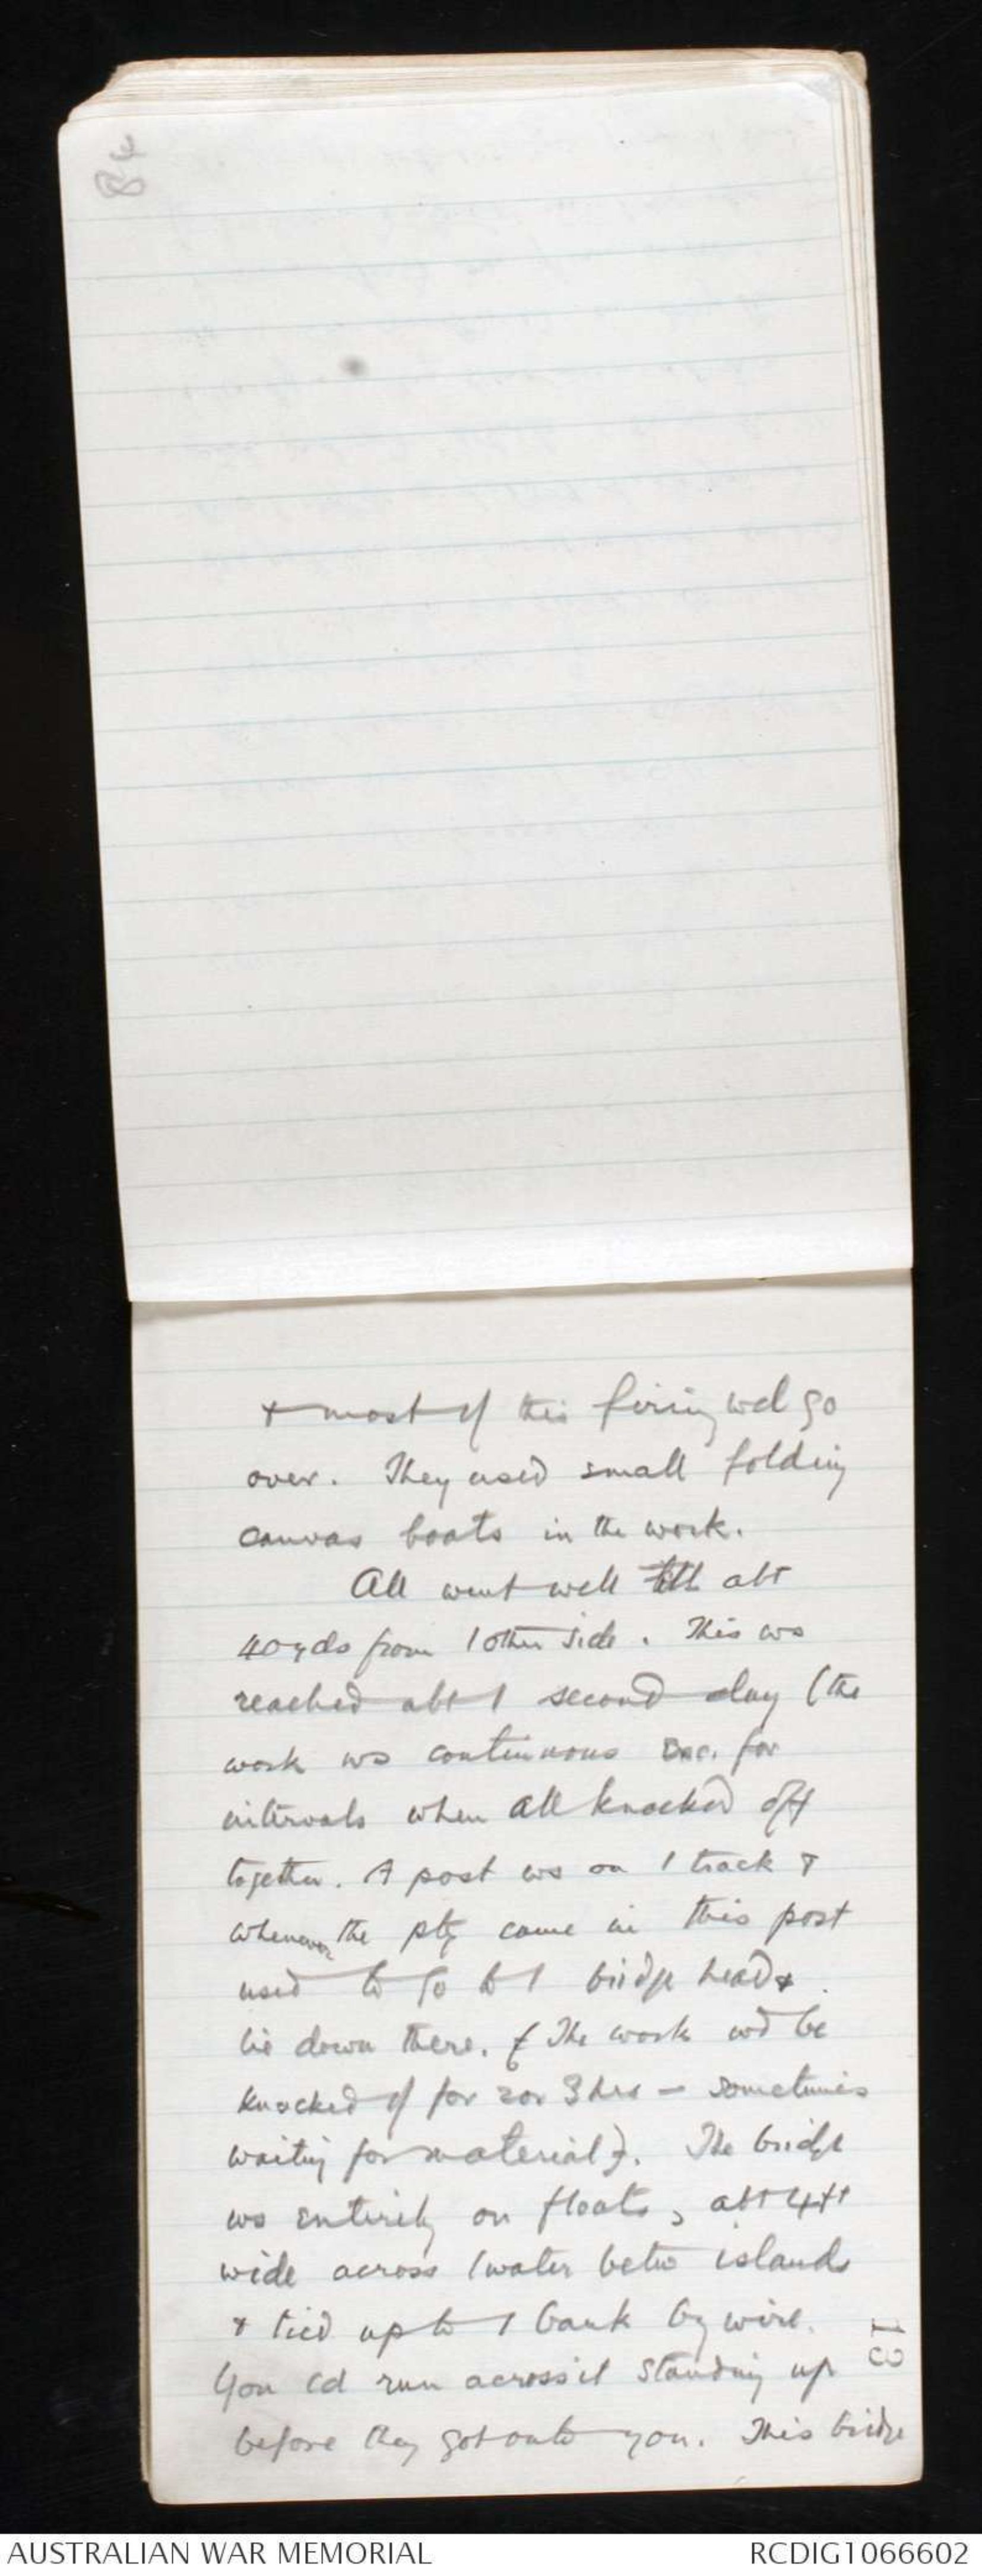 84
& most of this firing wd go
over. They used small folding
canvas boats in the work.
All went well till abt
40 yds from / other side. This ws
reached abt / second day (the
work ws continuous exc. for
intervals when all knocked off
together. A post ws on / track &
whenever the pty came in this post
used to go to / bridge head &
lie down there. (The work wd be
knocked off for 2 or 3 hrs – sometimes
waiting for material). The bridge
ws entirely on floats, abt 4ft
wide across / water betw islands
& tied up to / bank by wire.
You cd run across it standing up
before they got onto you. This bridge
13
AUSTRALIAN WAR MEMORIAL
RCDIG1066602